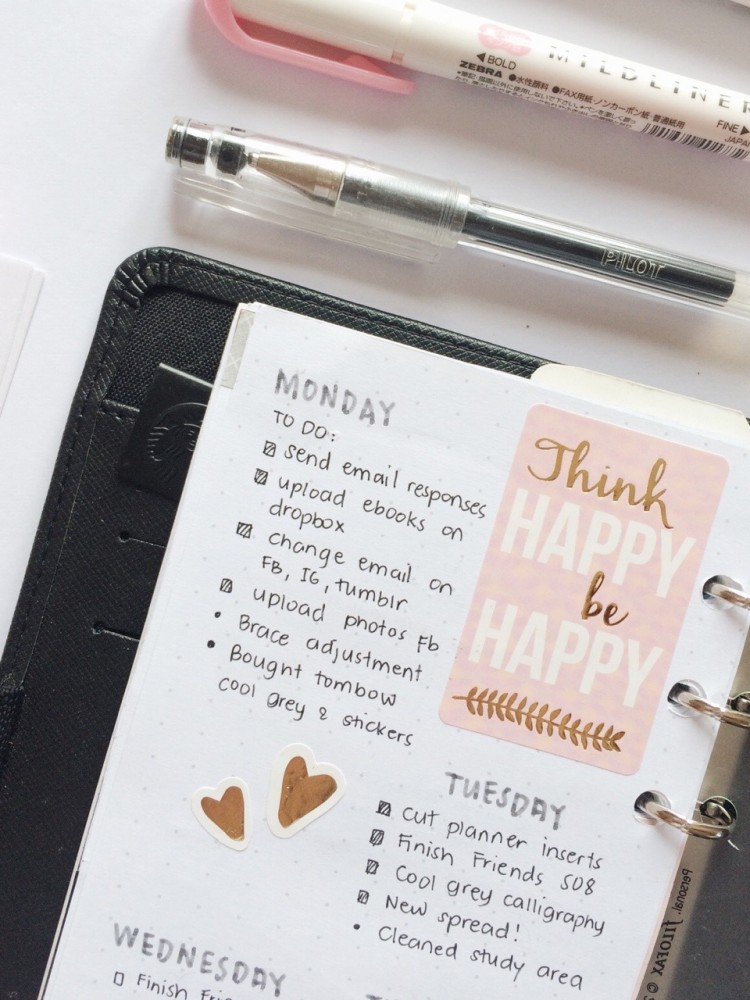 MILDLINER
BOLD
ZEBRA ●水性顔料 ●FAX用紙・ノンカーボン紙・普通紙用
FINE
JAPAN
PILOT
MONDAY
TO DO:
send email responses
upload ebooks on
dropbox
change email on
FB, IG, tumblr
upload photos Fb
• Brace adjustment
• Bought tombow
cool grey & stickers
Think
HAPPY
be
HAPPY
TUESDAY
cut planner inserts
Finish Friends S08
Cool grey calligraphy
New spread!
• Cleaned study area
WEDNESDAY
Finish
personal. FILOFAX ©